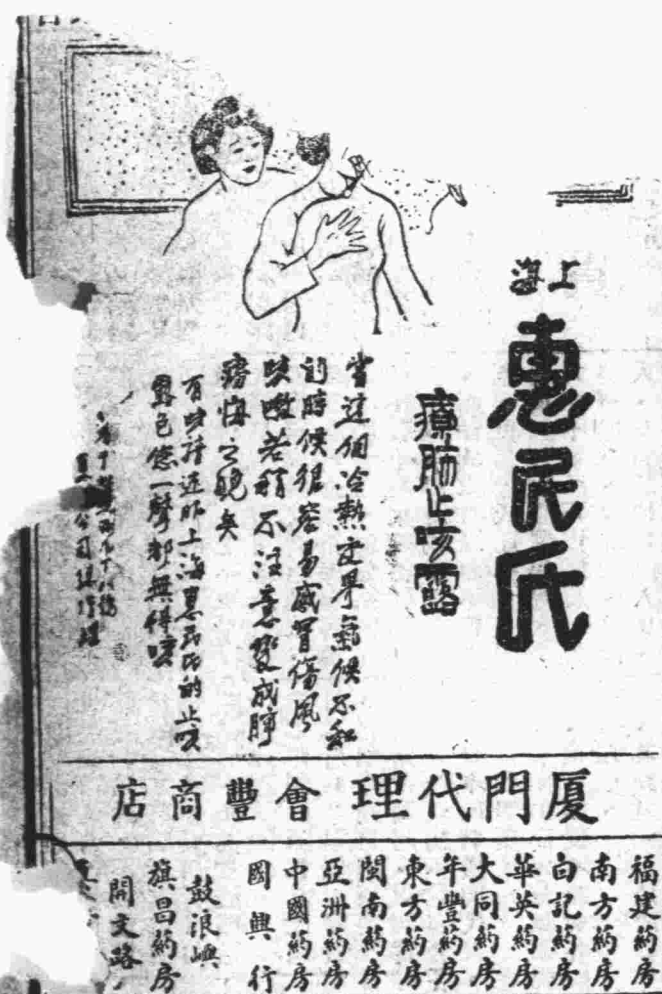 上海
惠民氏
療肺止咳露
當這個冷熱交界氣候不和
的時候很容易感冒傷風
咳嗽若稍不注意變成肺
癆悔之晚矣
有咳請速服上海惠民氏的止咳
露包您一聲都無得咳
公司經理
廈門代理會豐商店
福建葯房
南方葯房
白記葯房
華英葯房
大同葯房
年豐葯房
東方葯房
閩南葯房
亞洲葯房
中國葯房
國興行
鼓浪嶼
旗昌葯房
開文路